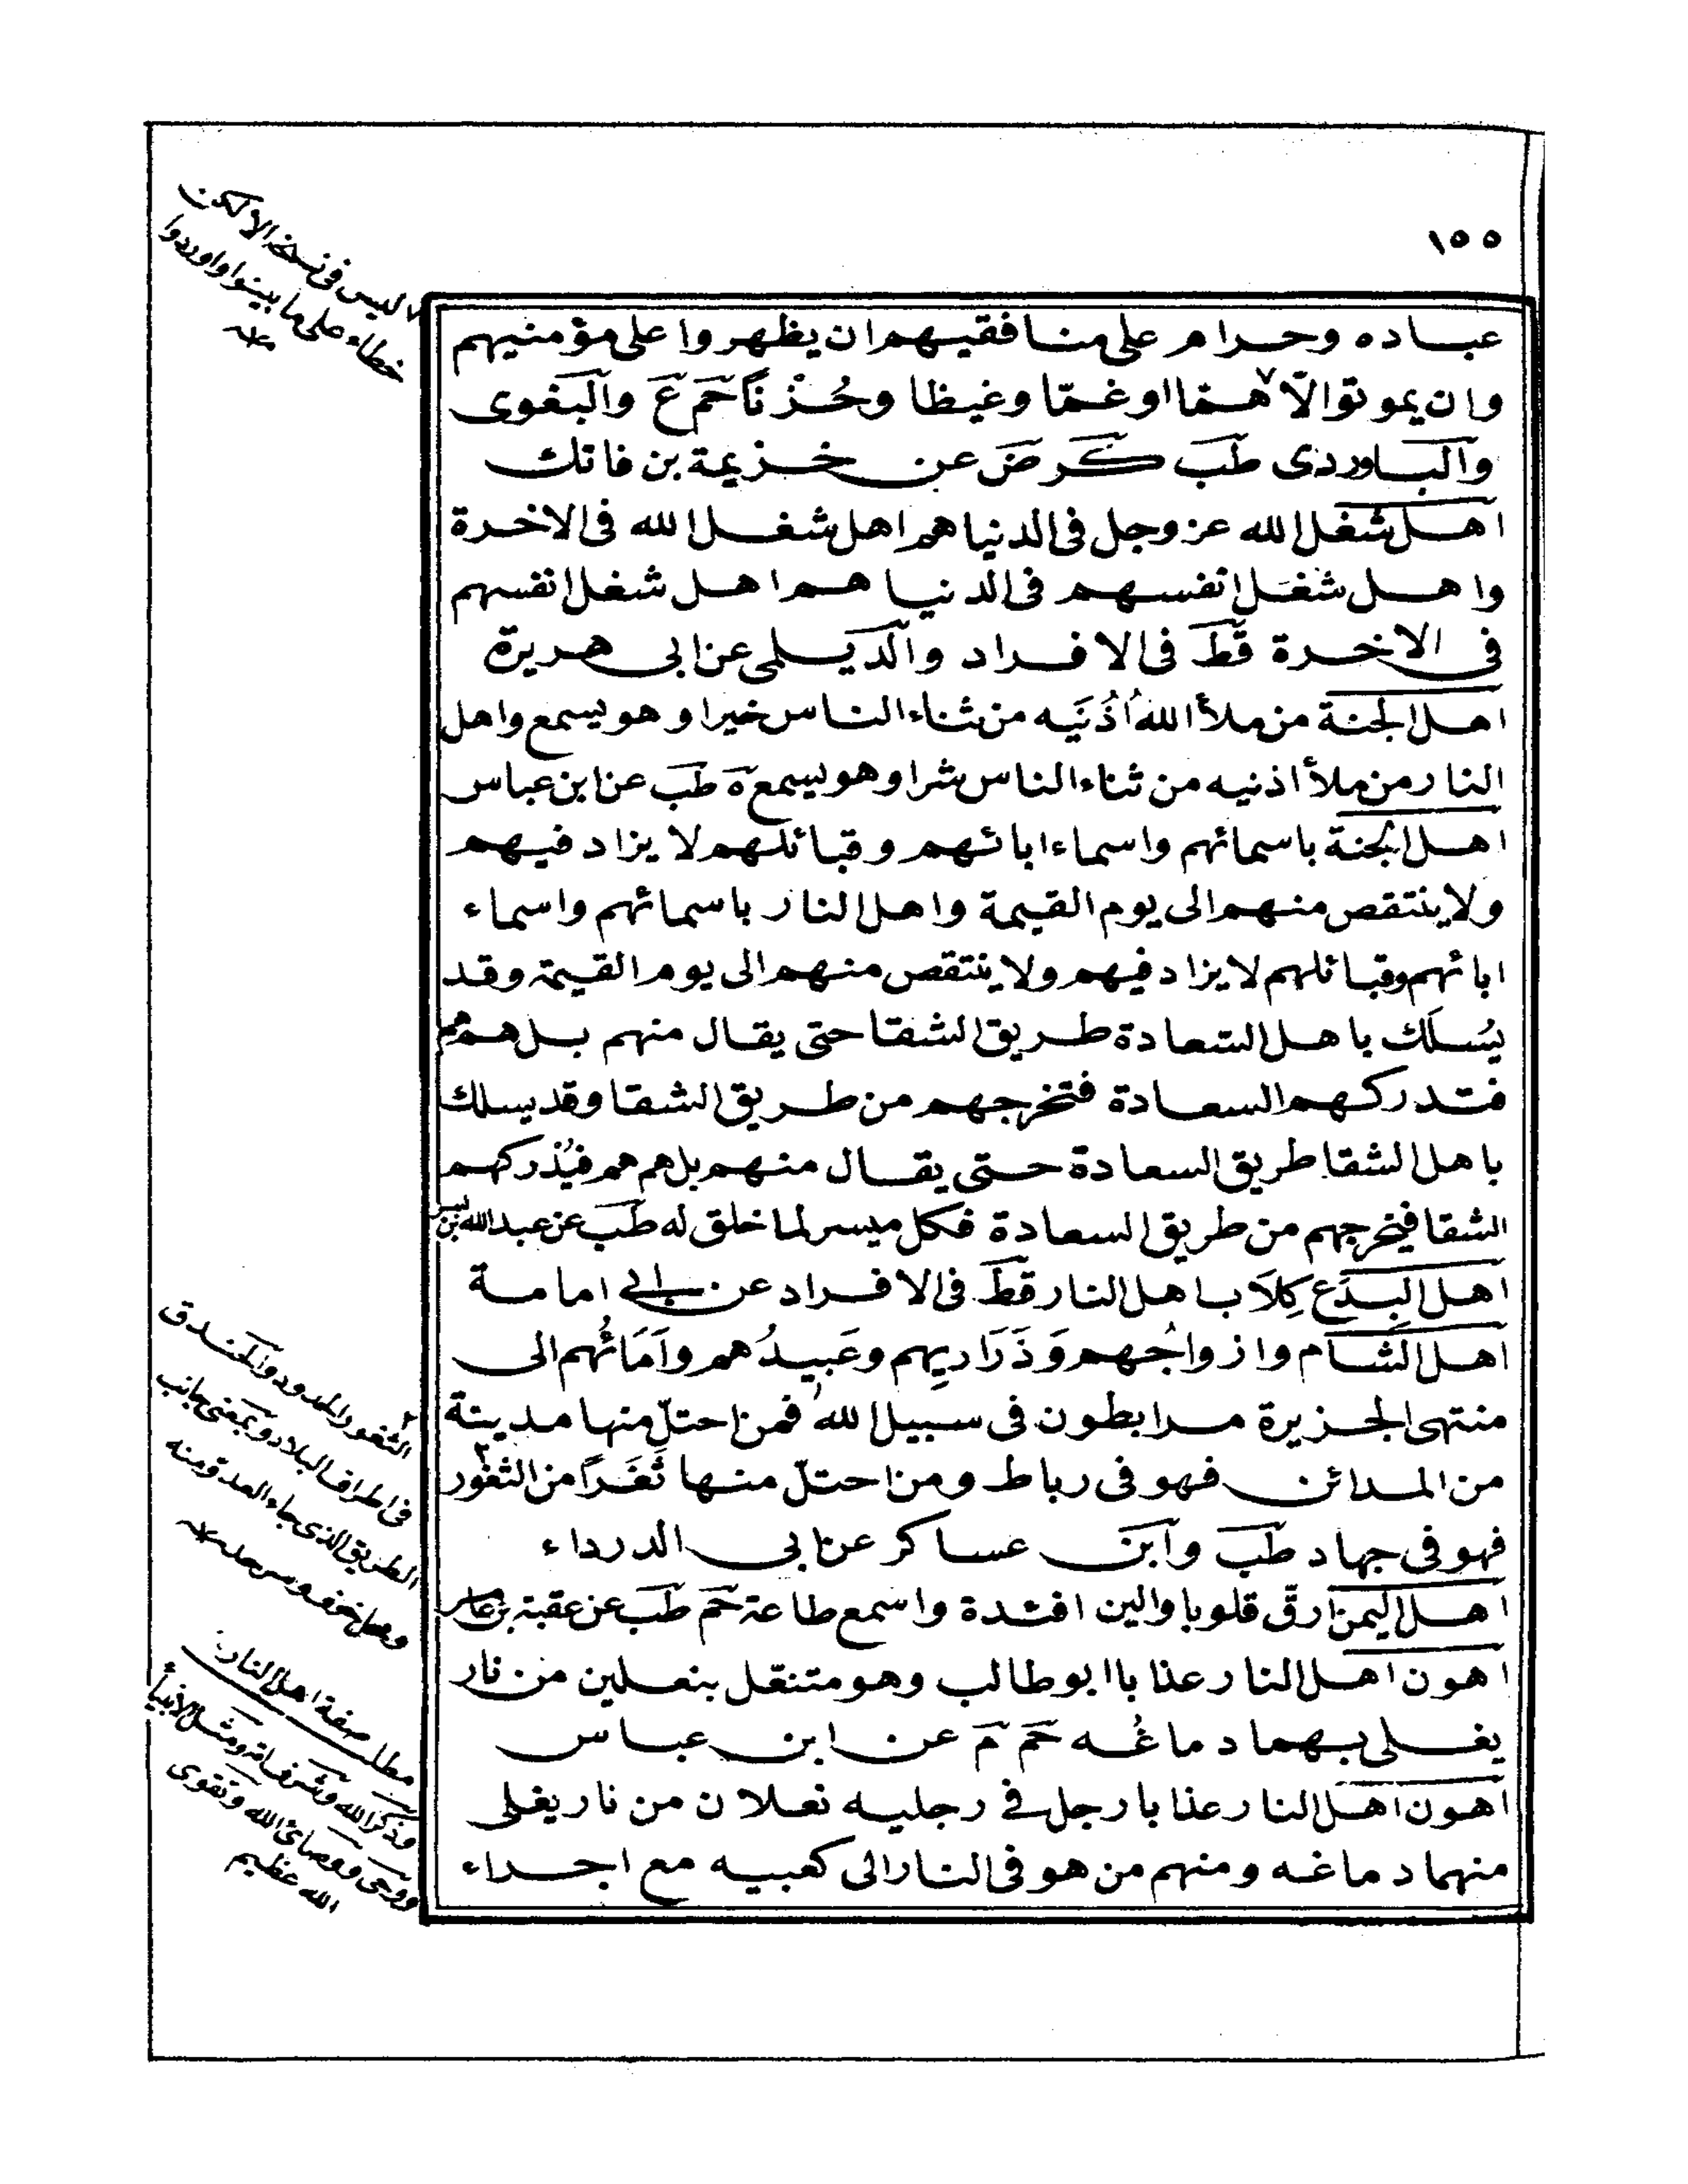 ١٥٥
عباده وحرام على منافقيهم ان يظهروا على مؤمنيهم
وان يموتوا الّا همّا او غمّا وغيظا وحُزْنًا حم ع والبغوى
والباوردى طب كر ض عن خزيمة بن فاتك
اهل شغل الله عز وجل فى الدنيا هم اهل شغل الله فى الاخرة
واهل شغل انفسهم فى الدنيا هم اهل شغل انفسهم
فى الاخرة قط فى الافراد والديلمى عن ابى هريرة
اهل الجنة من ملأ الله اُذُنَيه من ثناء الناس خيرا وهو يسمع واهل
النار من ملأ اذنيه من ثناء الناس شرا وهو يسمع ه طب عن ابن عباس
اهل الجنة باسمائهم واسماء ابائهم وقبائلهم لا يزاد فيهم
ولا ينتقص منهم الى يوم القيمة واهل النار باسمائهم واسماء
ابائهم وقبائلهم لا يزاد فيهم ولا ينتقص منهم الى يوم القيمة وقد
يُسلَك باهل السّعادة طريق الشقا حتى يقال منهم بل هم هم
فتدركهم السعادة فتخرجهم من طريق الشقا وقد يسلك
باهل الشقا طريق السعادة حتى يقال منهم بل هم هم فيُدركهم
الشقا فيخرجهم من طريق السعادة فكل ميسر لما خلق له طب عن عبد الله بن بسر
اهل البِدَع كِلَاب اهل النار قط فى الافراد عن ابى امامة
اهل الشام وازواجُهم وَذَرَاريِهم وعَبيدُهم وآمَائُهم الى
منتهى الجزيرة مرابطون فى سبيل الله فمن احتلّ منها مدينة
من المدائن فهو فى رباط ومن احتلّ منها ثَغَرًا من الثغور
فهو فى جهاد طب وابن عساكر عن ابى الدرداء
اهل اليمن ارقّ قلوبا والين افئدة واسمع طاعة حم طب عن عقبة بن عامر
اهون اهل النار عذابا ابو طالب وهو متنعّل بنعلين من نار
يغلى بهما دماغُه حم م عن ابن عباس
اهون اهل النار عذابا رجل فى رجليه نعلان من نار يغلى
منهما دماغه ومنهم من هو فى النار الى كعبيه مع اجداء
٧ ليس فى نسخة الا لكن
خطاء على ما بينوا واوردوا
منه
٢ الثغور والحدود والخندق
فى اطراف البلاد وبمعنى جانب
الطريق الذى جاء العدو منه
مطلب صفة اهل النار
وذكر الله وشرفه ومثل الانبياء
ووحى ووصائ الله وتقوى
الله عظيم